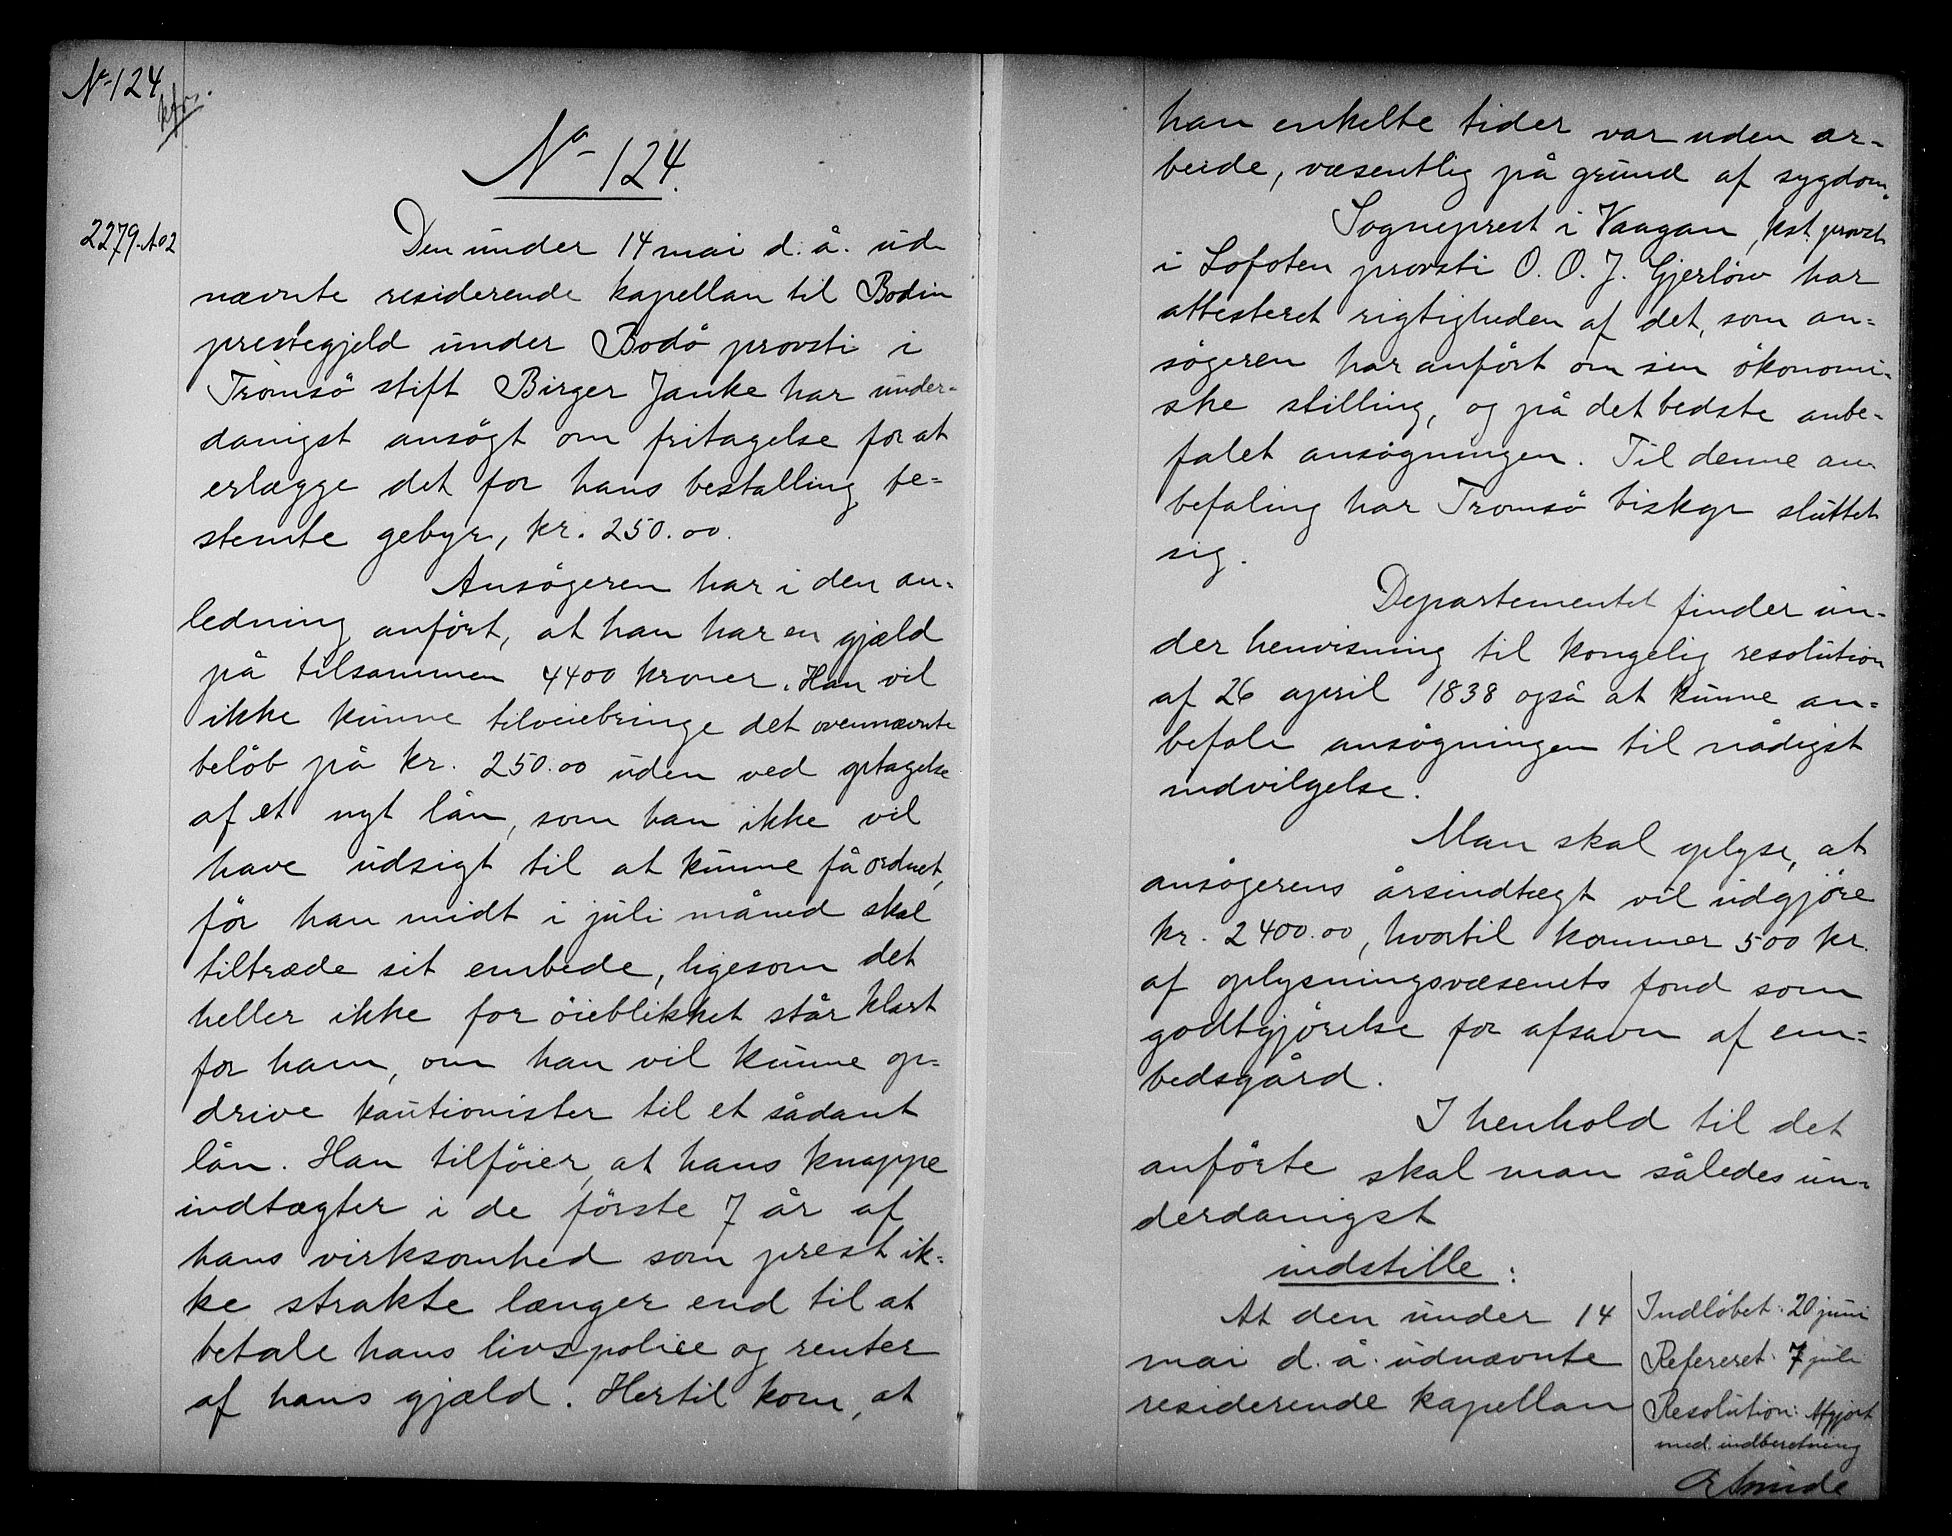 No 124
kfr.
No 124.
2279 A02
Den under 14 mai d. å. ud-
nævnte residerende kapellan til Bodin
prestegjeld under Bodö provsti i
Tromsö stift Birger Janke har under-
danigst ansögt om fritagelse for at
erlægge det for hans bestalling be-
stemte gebyr, kr. 250.00.
Ansögeren har i den an-
ledning anfört, at han har en gjæld
på tilsammen 4400 kroner. Han vil
ikke kunne tilveiebringe det ovennævnte
belöb på kr. 250.00 uden ved optagelse
af et nyt lån, som han ikke vil
have udsigt til at kunne få ordnet,
för han midt i juli måned skal
tiltræde sit embede, ligesom det
heller ikke for öieblikket står klart
for ham, om han vil kunne op-
drive kautionister til et sådant
lån. Han tilföier, at hans knappe
indtægter i de förste 7 år af
hans virksomhed som prest ik-
ke strakte længer end til at
betale hans livspolice og renter
af hans gjæld. Hertil kom, at
han enkelte tider var uden ar-
beide, væsentlig på grund af sygdom.
Sogneprest i Vaagan, kst. provst
i Lofoten provsti O. O. J. Gjerlöw har
attesteret rigtigheden af det, som an-
sögeren har anfört om sin ökonomi-
ske stilling, og på det bedste anbe-
falet ansögningen. Til denne an-
befaling har Tromsö biskop sluttet
sig.
Departementet finder un-
der henvisning til kongelig resolution
af 26 april 1838 også at kunne an-
befale ansögningen til nådigst
indvilgelse.
Man skal oplyse, at
ansögerens årsindtægt vil udgjöre
kr. 2400.00, hvortil kommer 500 kr.
af oplysningsvæsenets fond som
godtgjörelse for afsavn af em-
bedsgård.
I henhold til det
anförte skal man således un-
derdanigst
indstille:
At den under 14
mai d. å. udnævnte
residerende kapellan
Indlöbet: 20 juni
Refereret: 7 juli
Resolution: Afgjort
med indberetning